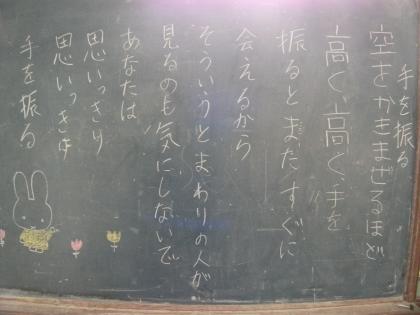 手を振る
空をかきまぜるほど
高く、高く、手を
振るとまたすぐに
会えるから
そういうとまわりの人が
見るのも気にしないで
あなたは
思いっきり
思いっきり
手を振る